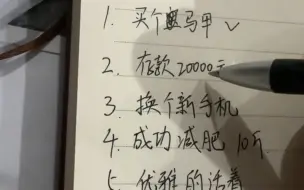 1. 买个马甲 ✓
2. 存款20000元
3. 换个新手机
4. 成功减肥 10斤
5. 优雅的活着